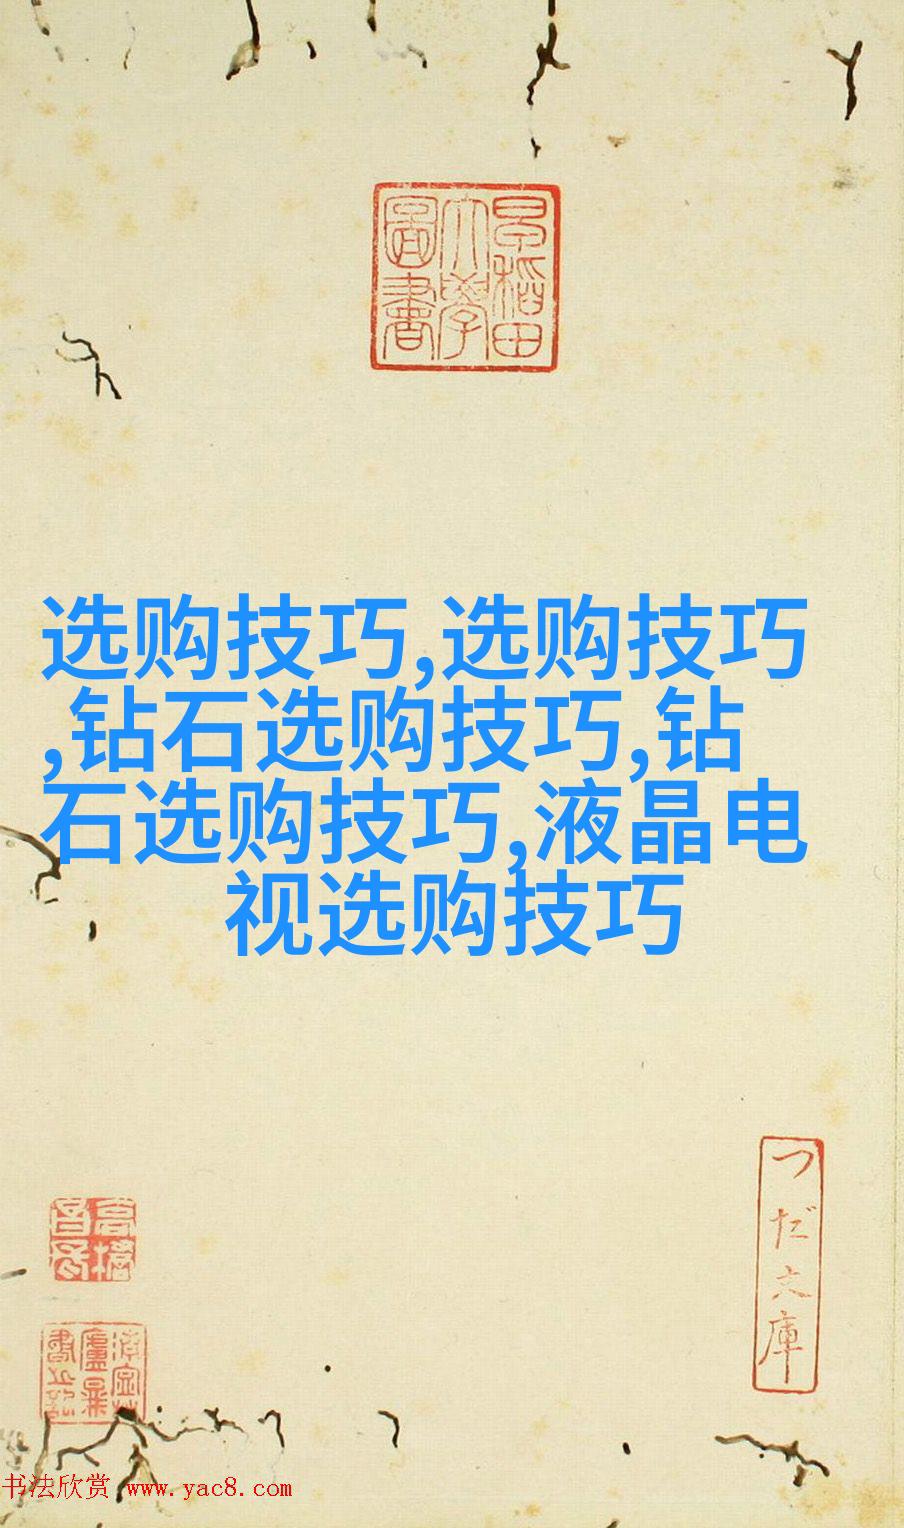 早稻田
大學
圖書
选购技巧,选购技巧
,钻石选购技巧,钻
石选购技巧,液晶电
视选购技巧
つだ文庫
书法欣赏 www.yac8.com